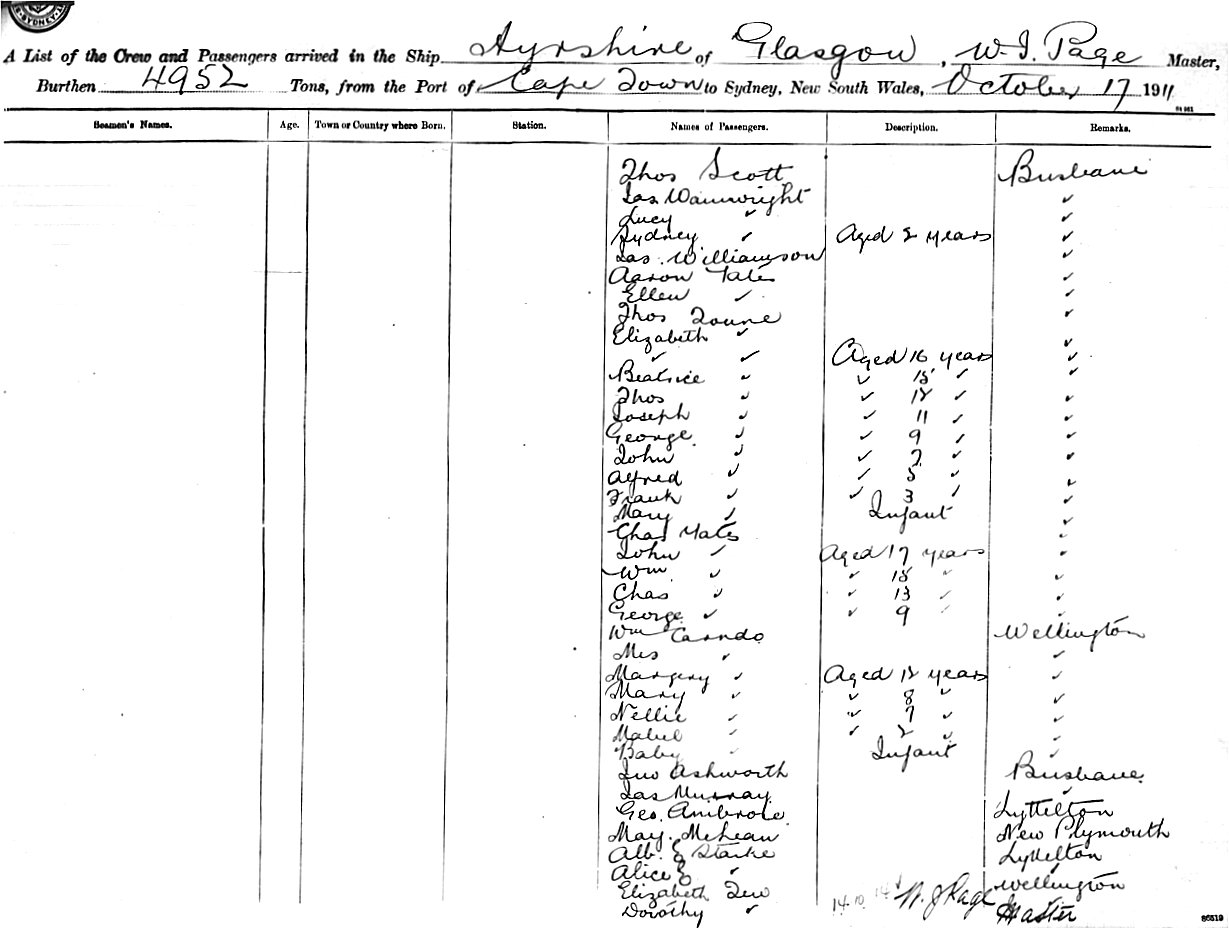 A List of the Crew and Passengers arrived in the Ship Ayrshire of Glasgow, W. J. Page Master,
Burthen 4952 Tons, from the Port of Cape Town to Sydney, New South Wales, October 17 1911
Seamen's Names. Age. Town or Country where Born. Station. Names of Passengers. Description. Remarks.
Thos Scott Brisbane
Jas. Wainwright ✓
Lucy ✓ ✓
Sydney ✓ Aged 2 years ✓
Jas. Williamson ✓
Aaron Yates ✓
Ellen ✓ ✓
Thos ✓
Elizabeth ✓
✓ ✓ Aged 16 years ✓
Beatrice ✓ ✓ 15 ✓ ✓
Thos ✓ ✓ 12 ✓ ✓
Joseph ✓ ✓ 11 ✓ ✓
George ✓ ✓ 9 ✓ ✓
John ✓ ✓ 7 ✓ ✓
Alfred ✓ ✓ 5 ✓
Frank ✓ ✓ 3 ✓ ✓
Mary ✓ Infant ✓
Chas Yates ✓
John ✓ Aged 17 years ✓
Wm ✓ ✓ 15 " ✓
Chas ✓ ✓ 13 ✓ ✓
George ✓ ✓ 9 ✓
Wm Wellington
Mrs ✓ ✓
Margery ✓ Aged 12 years ✓
Mary ✓ ✓ 8 ✓ ✓
Nellie ✓ ✓ 7 ✓ ✓
Mabel ✓ ✓ 2 ✓ ✓
Baby ✓ Infant ✓
Jno Ashworth Brisbane
Jas Murray ✓
Geo. Ambrose Lyttelton
May. McLean New Plymouth
Alb. } Starke Lyttelton
Alice } ✓ ✓
Elizabeth Tew Wellington
Dorothy ✓ W. J. Page Master
86519